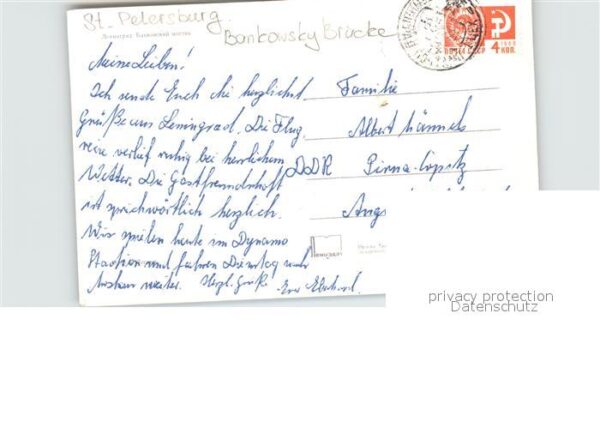 St. Petersburg
Bankowsky Brücke
Ленинград. Банковский мостик
ПОЧТА СССР
1966
4 КОП.
Meine Lieben!
Ich sende Euch die herzlichst.
Grüße aus Leningrad. Die Flug
reise verlief ruhig bei herrlichem
Wetter. Die Gastfreundschaft
ist sprichwörtlich herzlich.
Wir spielen heute im Dynamo
Stadion und fahren Dienstag nach
weiter. Herzl. Grüße Euer Eberhard.
Familie
Albert
DDR Pirna-Copitz
privacy protection
Datenschutz